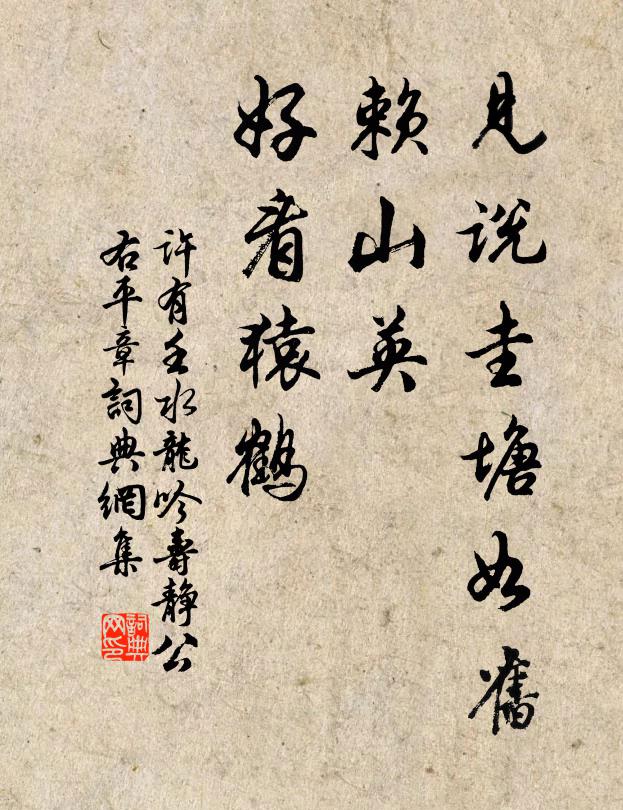 見説圭塘如舊
賴山英
好看猿鶴
許有壬水龍吟壽靜公
右平章詞典網集
詞典網印